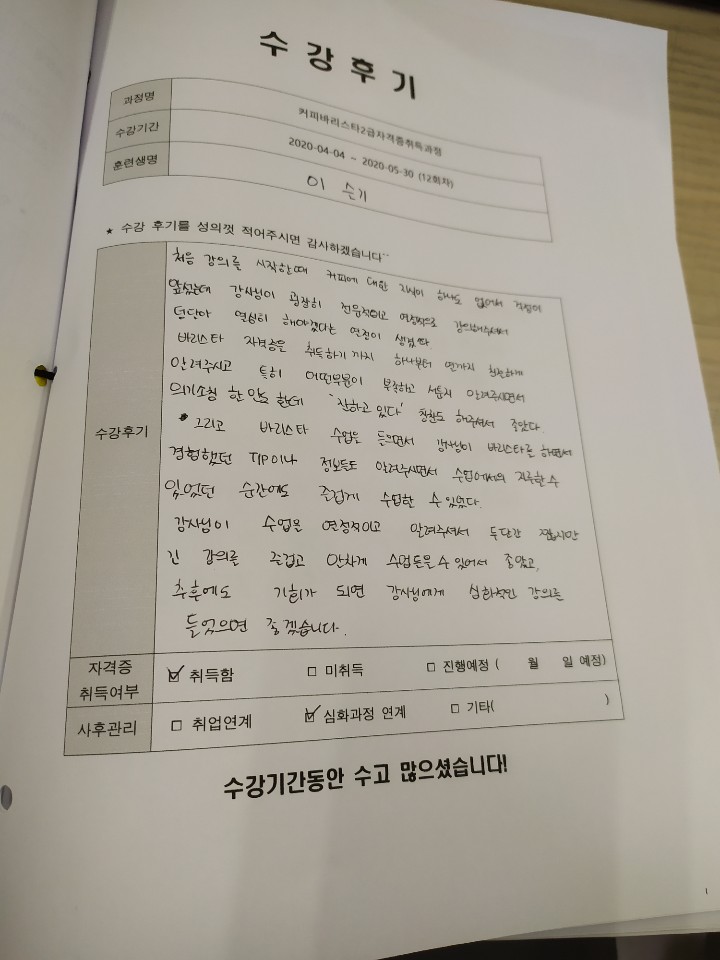 수 강 후 기
과정명 커피바리스타2급자격증취득과정
수강기간 2020-04-04 ~ 2020-05-30 (12회차)
훈련생명 이 슨기
★ 수강 후기를 성의껏 적어주시면 감사하겠습니다^^
수강후기
처음 강의를 시작할때 커피에 대한 지식이 하나도 없어서 걱정이
앞섰는데 강사님이 굉장히 전문적이고 열정적으로 강의해주셔서
덩달아 열심히 해야겠다는 열정이 생겼다
바리스타 자격증을 취득하기 까지 하나부터 열까지 친절하게
알려주시고 특히 어떤부분이 부족하고 서툰지 알려주시면서
의기소침 한 안 할때 '잘하고 있다' 칭찬도 해주셔서 좋았다
그리고 바리스타 수업을 들으면서 강사님이 바리스타를 하면서
경험했던 TIP이나 정보들도 알려주시면서 수업에서의 지루할 수
있었던 순간에도 즐겁게 수업할 수 있었다.
강사님이 수업을 열정적이고 알려주셔서 두달간 짧지만
긴 강의를 즐겁고 알차게 수업들을 수 있어서 좋았고,
추후에도 기회가 되면 강사님에게 심화적인 강의를
들었으면 좋겠습니다.
자격증 취득여부 ☑ 취득함 □ 미취득 □ 진행예정 ( 월 일 예정)
사후관리 □ 취업연계 ☑ 심화과정 연계 □ 기타( )
수강기간동안 수고 많으셨습니다!
1